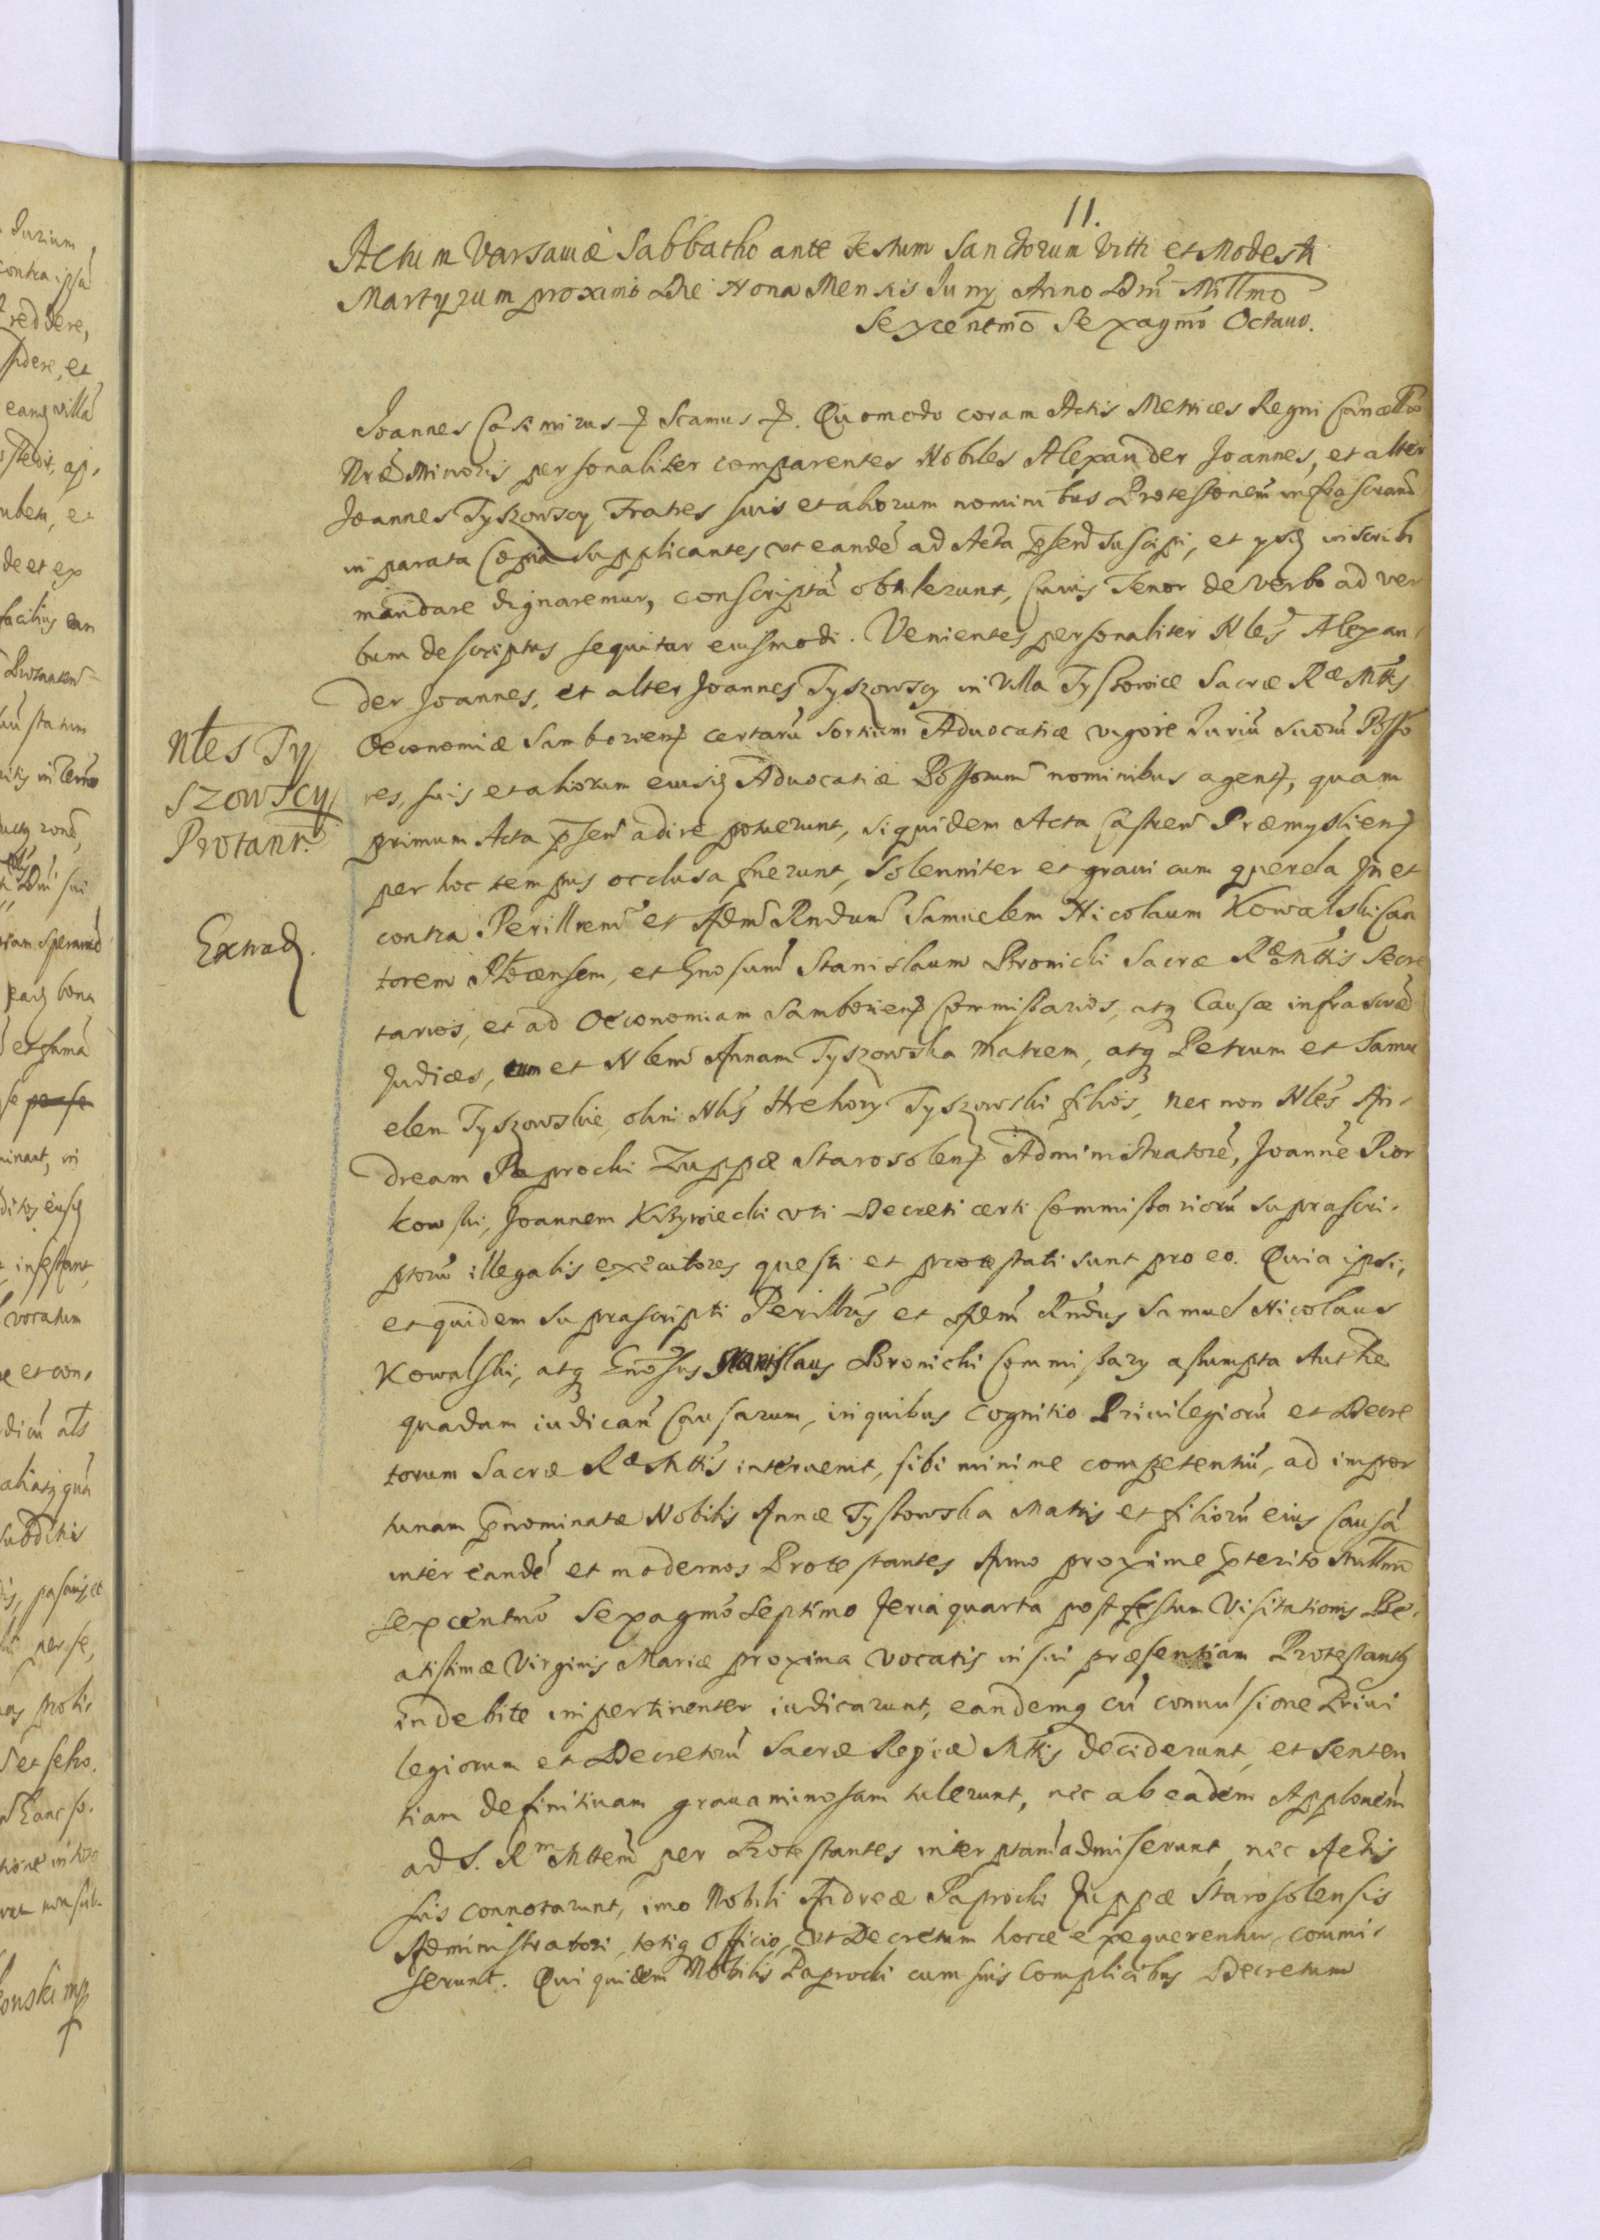 11.
Actum Varsaviæ Sabbatho ante Festum Sanctorum Viti et Modesti
Martyrum proximo Die Nona Mensis Juny Anno Dni Millmo
Sexcentmo Sexagmo Octauo.
Joannes Casimirus Scamus. Quomodo coram Actis Metrices Regni Cancellæ
Nræ Minoris personaliter comparentes Nobiles Alexander Joannes, et alter
Joannes Tyszowscy Fratres suis et aliorum nominibus Protestonem infrascriand
in parata Copia supplicantes vt eande ad Acta psen suscipi, et ysq inscribi
mandare dignaremur, conscripta obtulerunt, Cuius Tenor de verbo ad ver
bum descriptus sequitur eiusmodi. Venientes personaliter Nles Alexan
der Joannes, et alter Joannes Tyszowscy in Villa Tyssowice Sacræ Ræ Mttis
Oeconomiæ Samborien certaru Sortium Advocatiæ vigore Juriu suoru Posso
res, suis et aliorum eiusq Advocatiæ Possorum nominibus agen, quam
primum Acta psen adire potuerunt, siquidem Acta Castren Præmyslien
per hoc tempus occlusa fuerunt, solenniter et graui cum querela In et
contra Perillrem et Adm Rndum Samuelem Nicolaum Kowalski Can
torem Plocensem, et Gnosum Stanislaum Bronicki Sacræ Ræ Mttis Secre
tarios, et ad Oeconomiam Samborien Commissarios, atq Causæ infrascræ
Judices, et Nlem Annam Tyszowska Matrem, atq Petrum et Samu
elem Tyszowskie, olim Nlis Hrehory Tyszowski filios, nec non Nles An
dream Paprocki Zuppæ Starosolen Administratore, Joanne Pior
kowski, Joannem Krzywiecki vti Decreti certi Commissarioru suprascri
ptoru illegalis executores questi et protestati sunt pro eo. Quia ipsi,
et quidem suprascripti Perillris et Adm Rndus Samuel Nicolaus
Kowalski, atq Gnosus Stanislaus Bronicki Commissary assumpta Authe
quadam iudican Causarum, in quibus Cognitio Priuilegioru et Decre
torum Sacræ Ræ Mttis interuenit, sibi minime competentiu, ad impor
tunam pnominatæ Nobilis Annæ Tyssowska Matris et filioru eius Causa
inter eande et modernos Protestantes Anno proxime pterito Millmo
sexcentmo Sexagmo Septimo Feria quarta post festum Visitationis Be
atissimæ Virginis Mariæ proxima vocatis in sui præsentiam Protestantq
indebite impertinenter iudicarunt, eandemq cu conuulsione Priui
legiorum et Decretoru Sacræ Regiæ Mttis deciderunt, et Senten
tiam definitiuam grauaminosam tulerunt, nec ab eadem Applonem
ad S. Rm Mttem per Protestantes interptam admiserunt, nec Actis
suis connotarunt, imo Nobili Andreæ Paprocki Zuppæ Starosolensis
Administratori, totiq Officio, vt Decretum hocce exequerentur, commi
serunt. Qui quidem Nobilis Paprocki cum suis Complicibus Decretum
Nles Ty
szowscy
Protantr
Extrad.